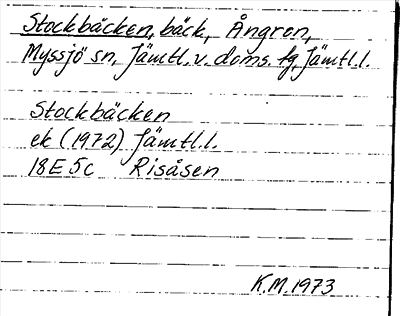 Stockbäcken, bäck, Ångron,
Myssjö sn, Jämtl. v. doms. fg, Jämtl. l.
Stockbäcken
ek (1972) Jämtl. l.
18E 5c Risåsen
K.M. 1973